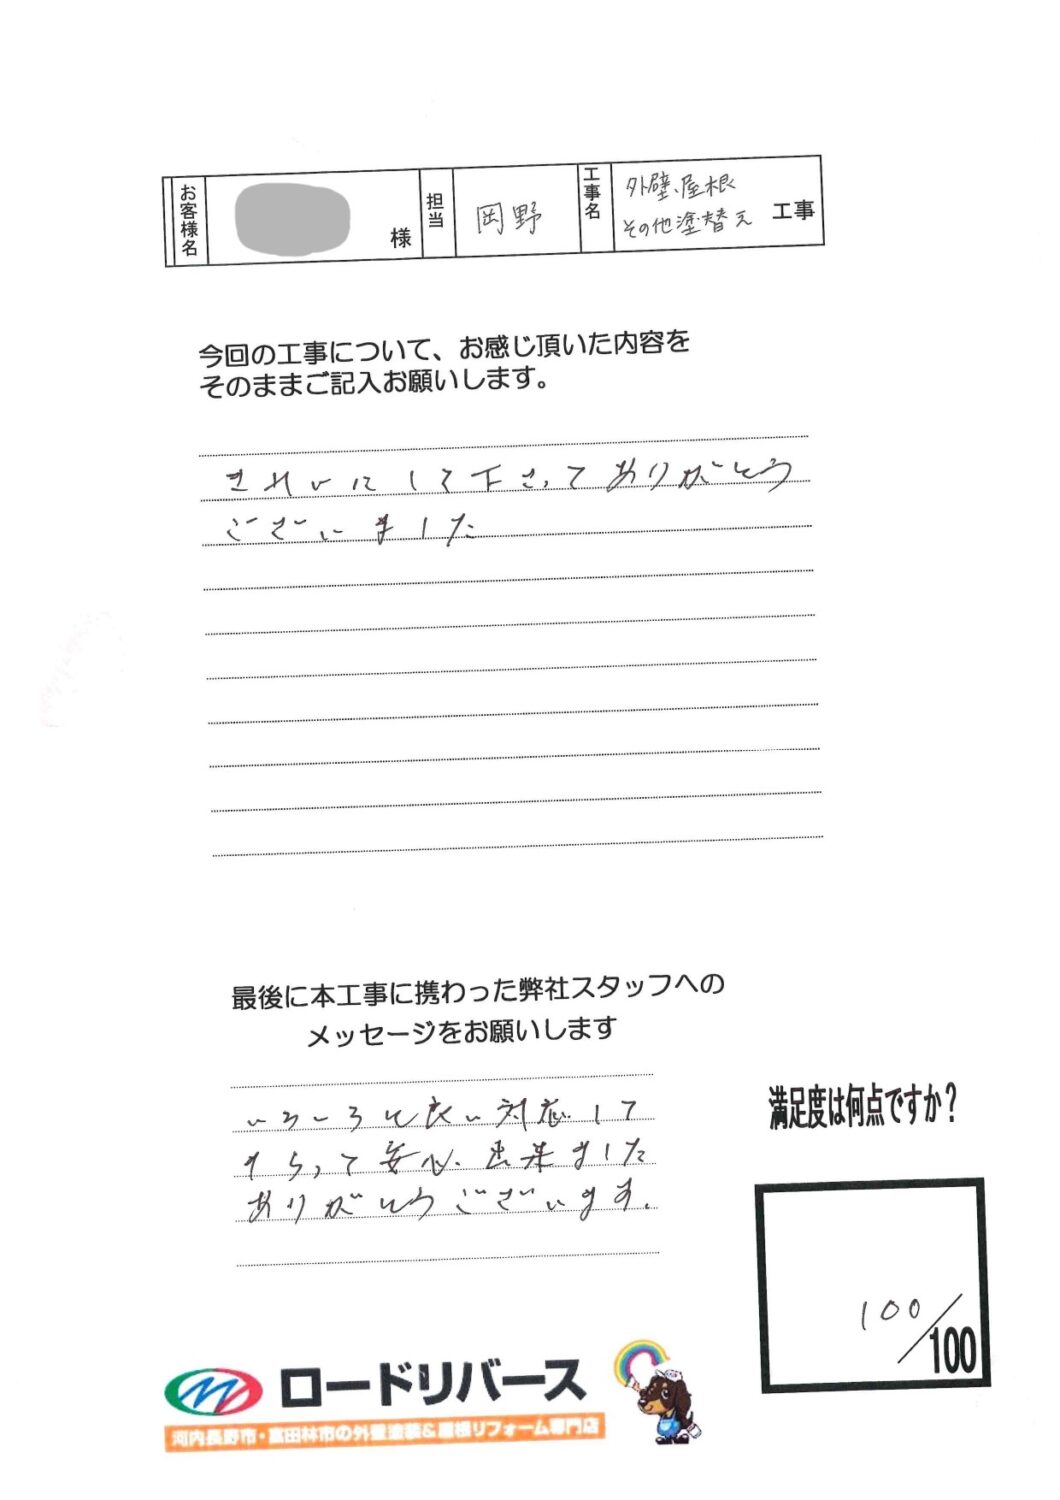 お客様名 様 担当 岡野 工事名 外壁、屋根 その他塗替え 工事
今回の工事について、お感じ頂いた内容を
そのままご記入お願いします。
きれいにして下さってありがとう
ございました
最後に本工事に携わった弊社スタッフへの
メッセージをお願いします
いろいろと良い対応して
もらって安心出来ました
ありがとうございます。
満足度は何点ですか？
100/100
ロードリバース
河内長野市・富田林市の外壁塗装&屋根リフォーム専門店